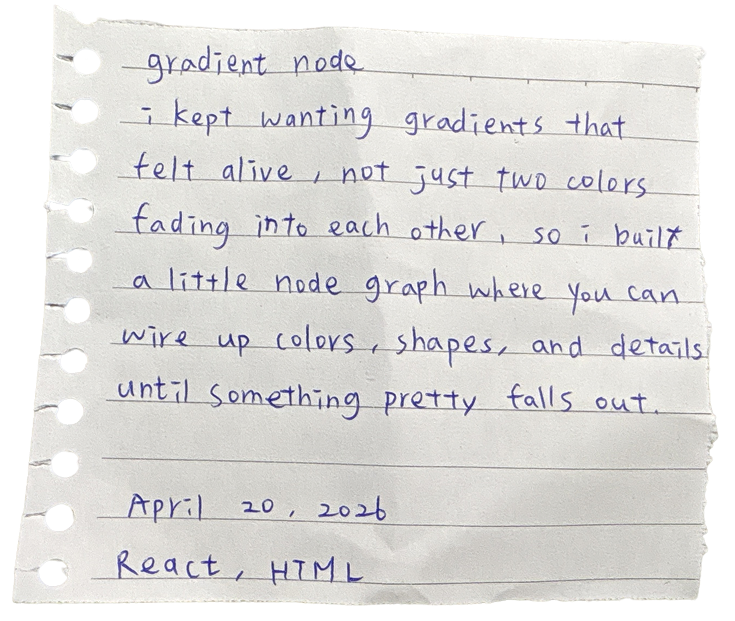 gradient node
i kept wanting gradients that
felt alive, not just two colors
fading into each other, so i built
a little node graph where you can
wire up colors, shapes, and details
until something pretty falls out.
April 20, 2026
React, HTML